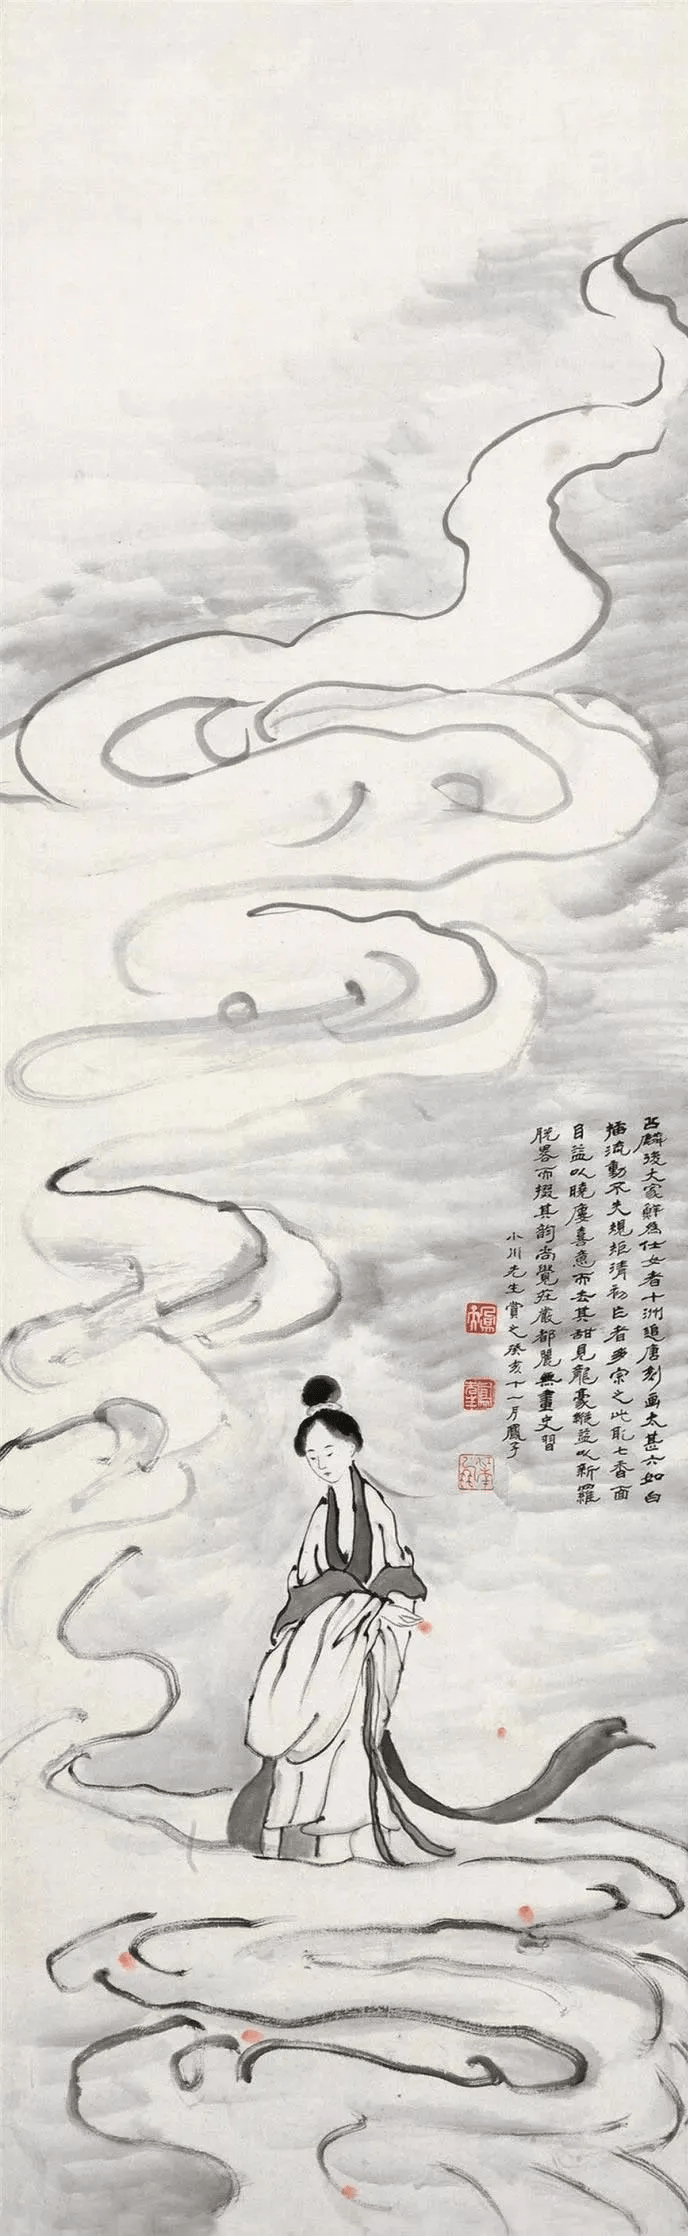 公麟後大家鮮為仕女者十洲追唐刻畫太甚六如白
描流動不失規矩清初作者多宗之此取七香面
目益以曉廔喜意而去其甜見龍豪縱益以新羅
脫略而掇其韵尚覺莊嚴都麗無畫史習
小川先生賞之癸亥十一月鳳子